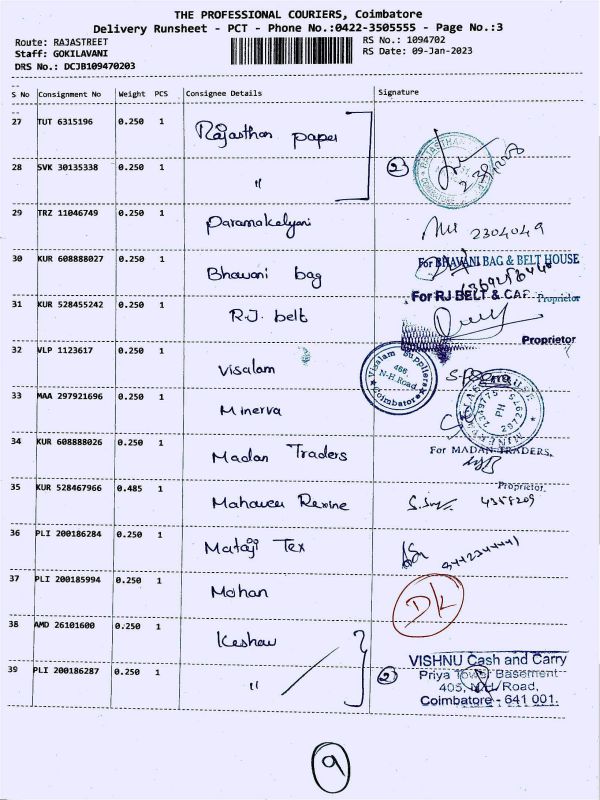 THE PROFESSIONAL COURIERS, Coimbatore
Delivery Runsheet - PCT - Phone No.:0422-3505555 - Page No.:3
Route: RAJASTREET
RS No.: 1094702
Staff: GOKILAVANI
RS Date: 09-Jan-2023
DRS No.: DCJB109470203
S No Consignment No Weight PCS Consignee Details Signature
27 TUT 6315196 0.250 1 Rajasthan paper
28 SVK 30135338 0.250 1 " 2
29 TRZ 11046749 0.250 1 Paramakalyani 2304049
30 KUR 608888027 0.250 1 Bhavani bag
For BHAVANI BAG & BELT HOUSE
Proprietor
31 KUR 528455242 0.250 1 R.J. belt
For RJ BELT & CAP
Proprietor
32 VLP 1123617 0.250 1 Visalam
Visalam Suppliers
466,
N-H Road,
Coimbatore
33 MAA 297921696 0.250 1 Minerva
34 KUR 608888026 0.250 1 Madan Traders
For MADAN TRADERS,
Proprietor.
35 KUR 528467966 0.485 1 Mahaveer Rexine 4358209
36 PLI 200186284 0.250 1 Mataji Tex
37 PLI 200185994 0.250 1 Mohan D/L
38 AMD 26101600 0.250 1 Keshav
39 PLI 200186287 0.250 1 " 2
VISHNU Cash and Carry
Priya Tower Basement
405, N.H. Road,
Coimbatore - 641 001.
9